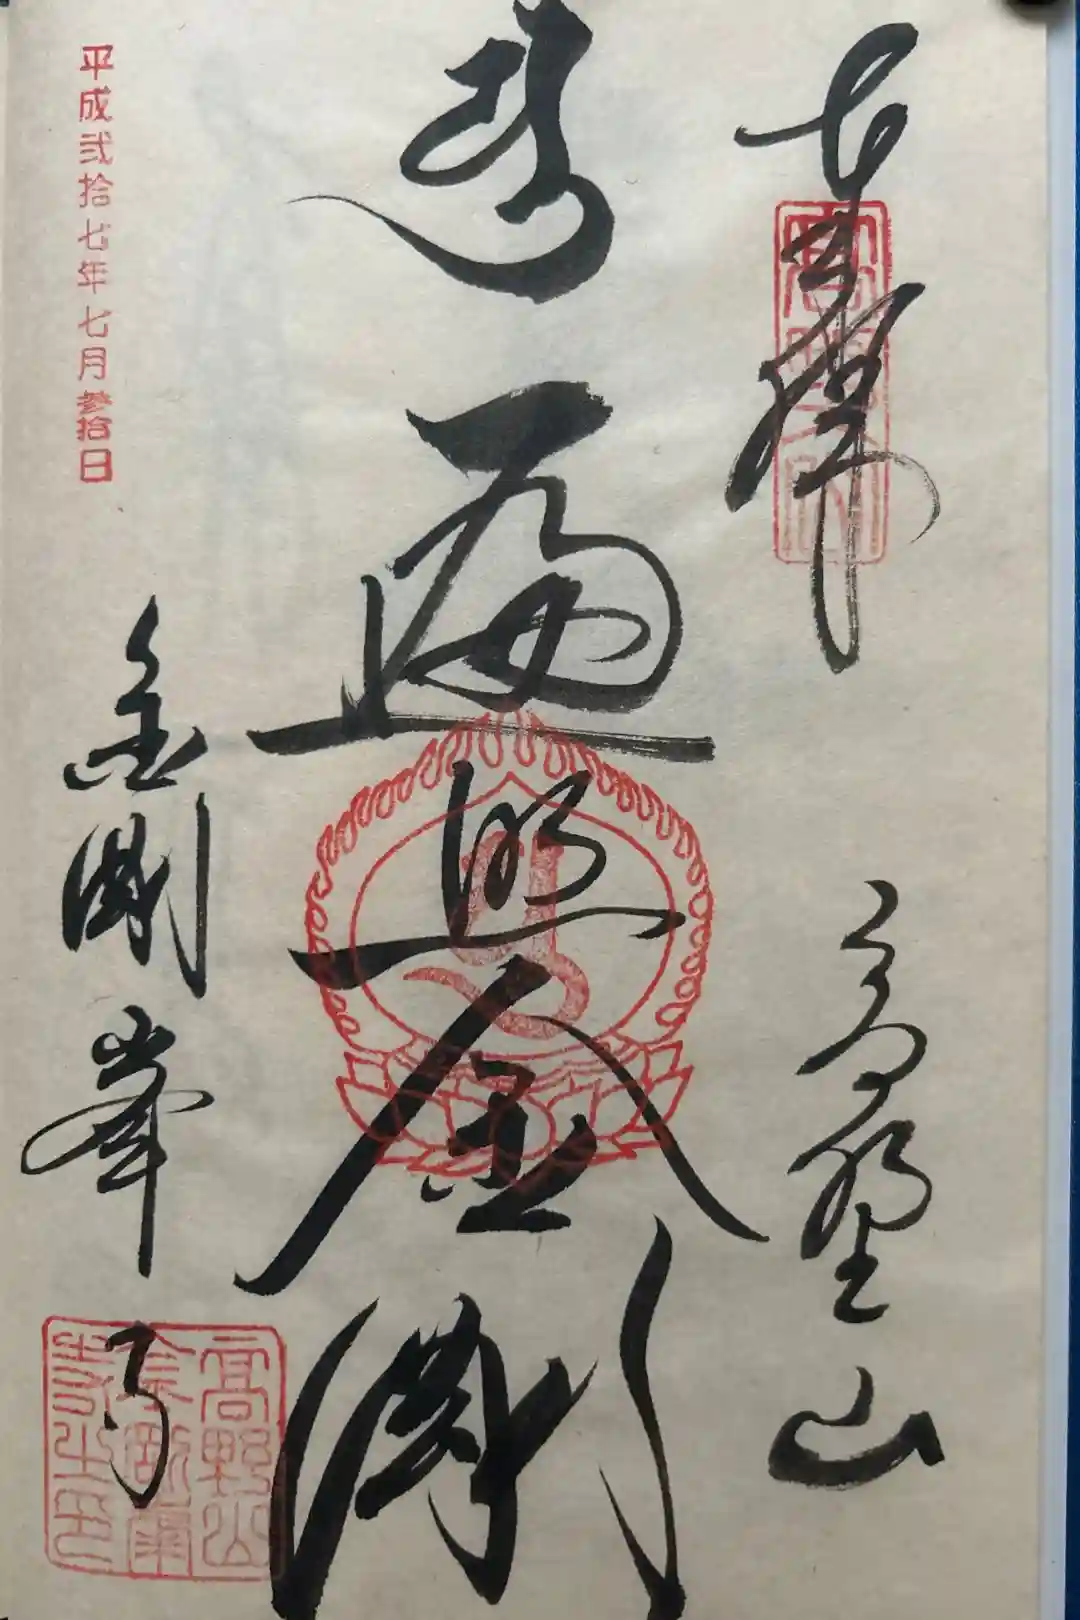 奉拝
高野山
遍照金剛
金剛峯寺
平成弐拾七年七月参拾日
高野山
金剛峯
寺之印